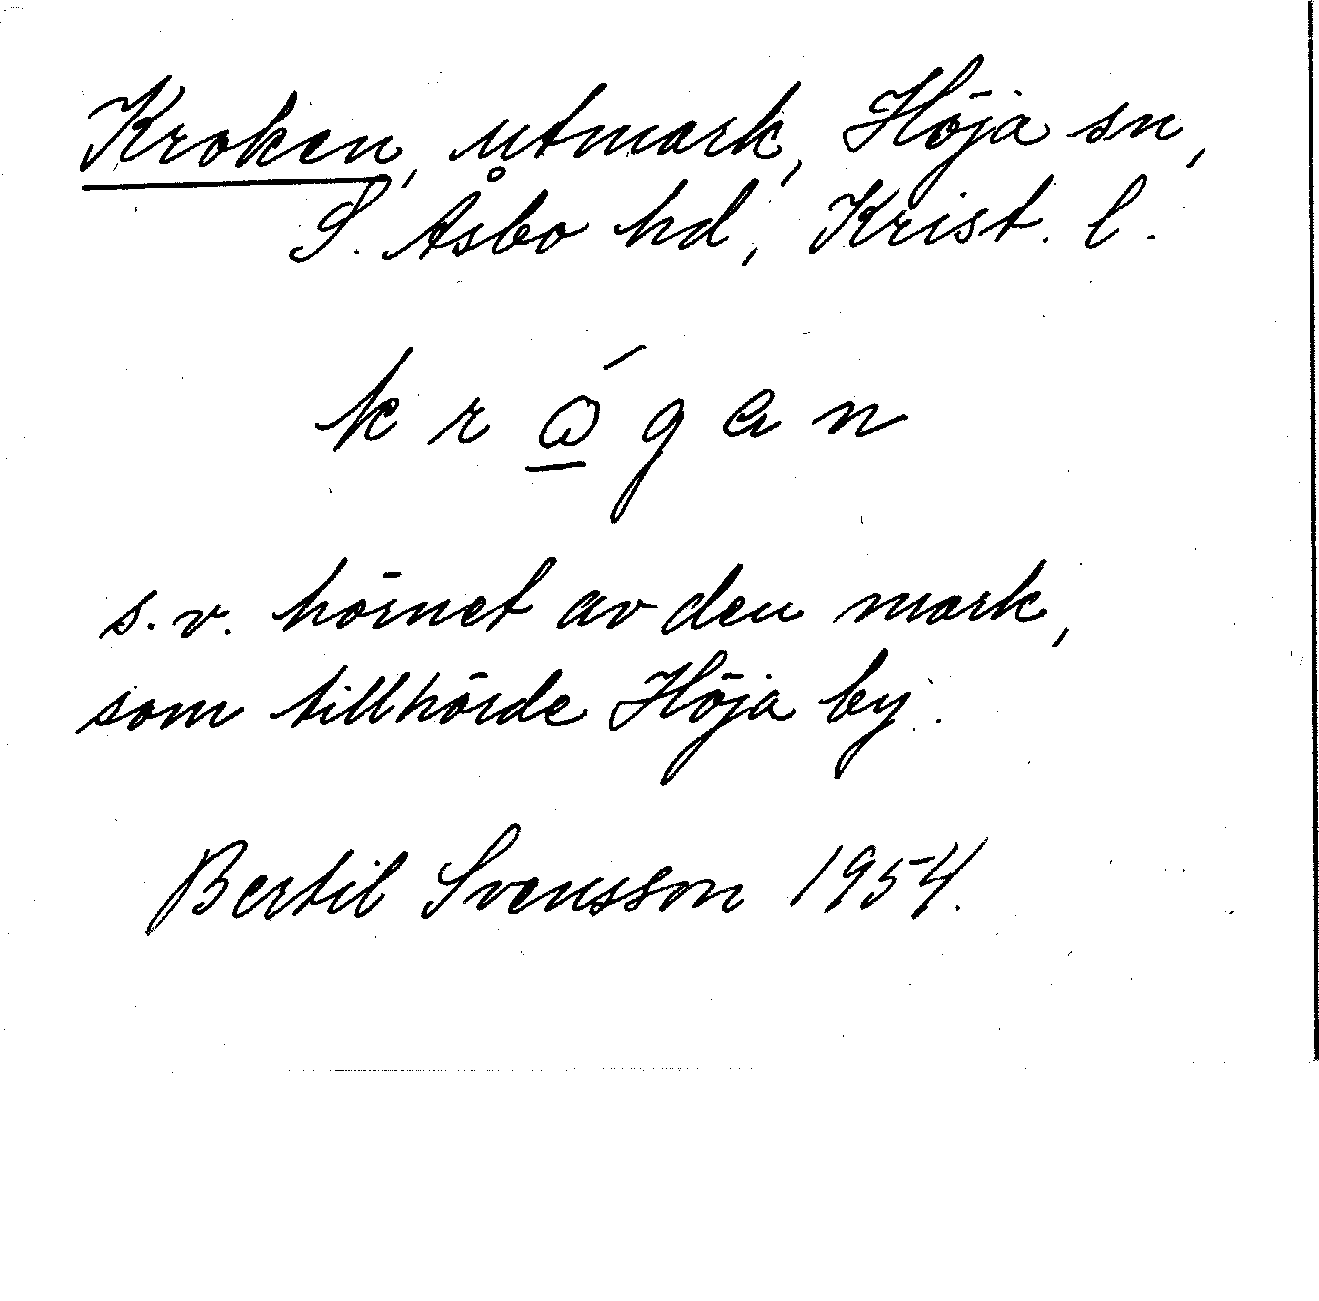 Kroken, utmark, Höja sn,
S. Åsbo hd, Krist. l.
krώ̲gan
s.v. hörnet av den mark,
som tillhörde Höja by.
Bertil Svensson 1954.